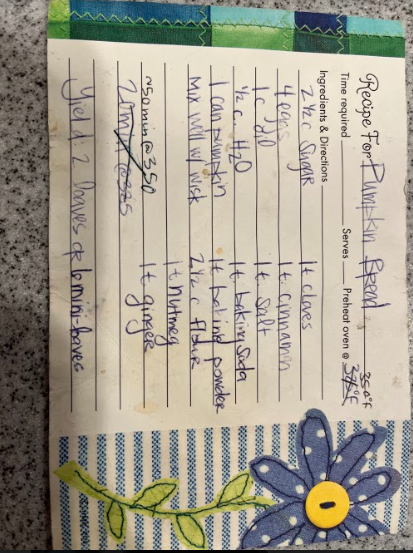 Recipe For Pumpkin Bread
Time required Serves Preheat oven @ 375°F 350°F
Ingredients & Directions
2 1/2 c Sugar 1t cloves
4 eggs 1t cinnamon
1 c oil 1t Salt
1/2 c. H2O 1t baking soda
1 can pumpkin 1t baking powder
Mix well w/ wisk 2 1/2 c flour
1t nutmeg
~50 min @ 350 1t ginger
@ 325
Yield: 2 loaves or 6 mini-loaves